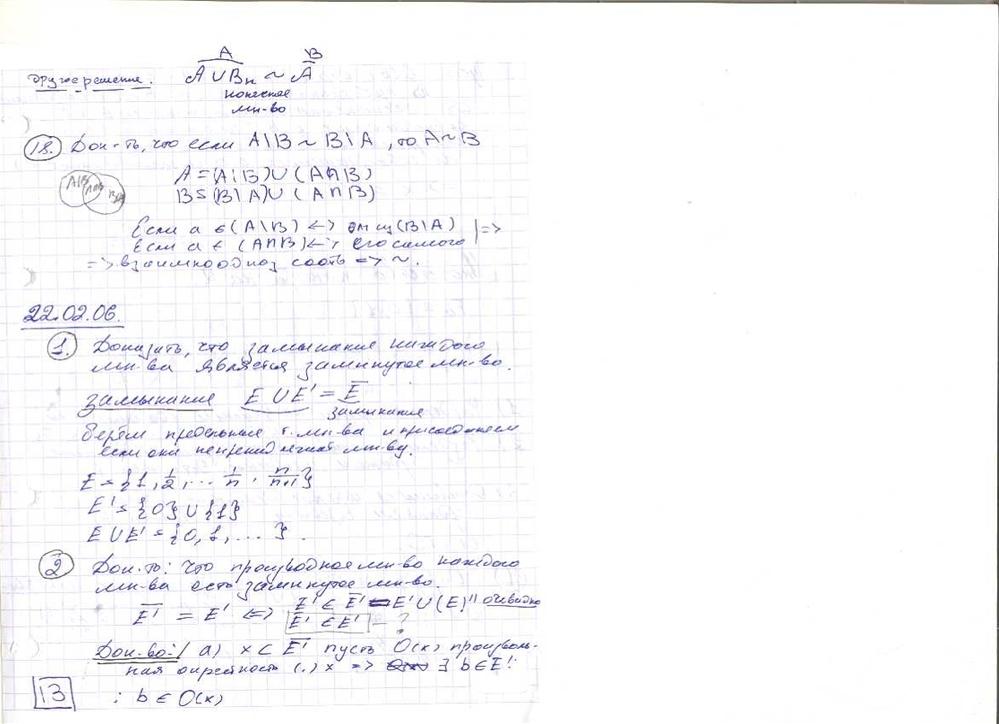 A B
другое решение. A ∪ Bₙ ~ A
конечное
мн-во
18. Док-ть, что если A\B ~ B\A, то A~B
A\B A∩B B\A
A = (A\B) ∪ (A∩B)
B = (B\A) ∪ (A∩B)
Если a ∈ (A\B) <-> эл из (B\A) | =>
Если a ∈ (A∩B) <-> его самого
=> взаимнооднoз соотв => ~.
22.02.06.
1. Доказать, что замыкание каждого
мн-ва является замкнутое мн-во.
замыкание E ∪ E' = E̅
замыкание
берём предельные т. мн-ва и присоединяем
если они не принадлежат мн-ву.
E = {1, 1/2, ... 1/n, n/n+1}
E' = {0} ∪ {1}
E ∪ E' = {0, 1, ... }.
2 Док-ть: что производное мн-во каждого
мн-ва есть замкнутое мн-во.
E̅' = E' <=> E' ∈ E̅' = E' ∪ (E)'' очевидно
E̅' ∈ E' - ?
Док-во:/ a) x ⊂ E̅' пусть O(x) произволь-
ная окрестность (.) x => ∃ b ∈ E':
: b ∈ O(x)
13